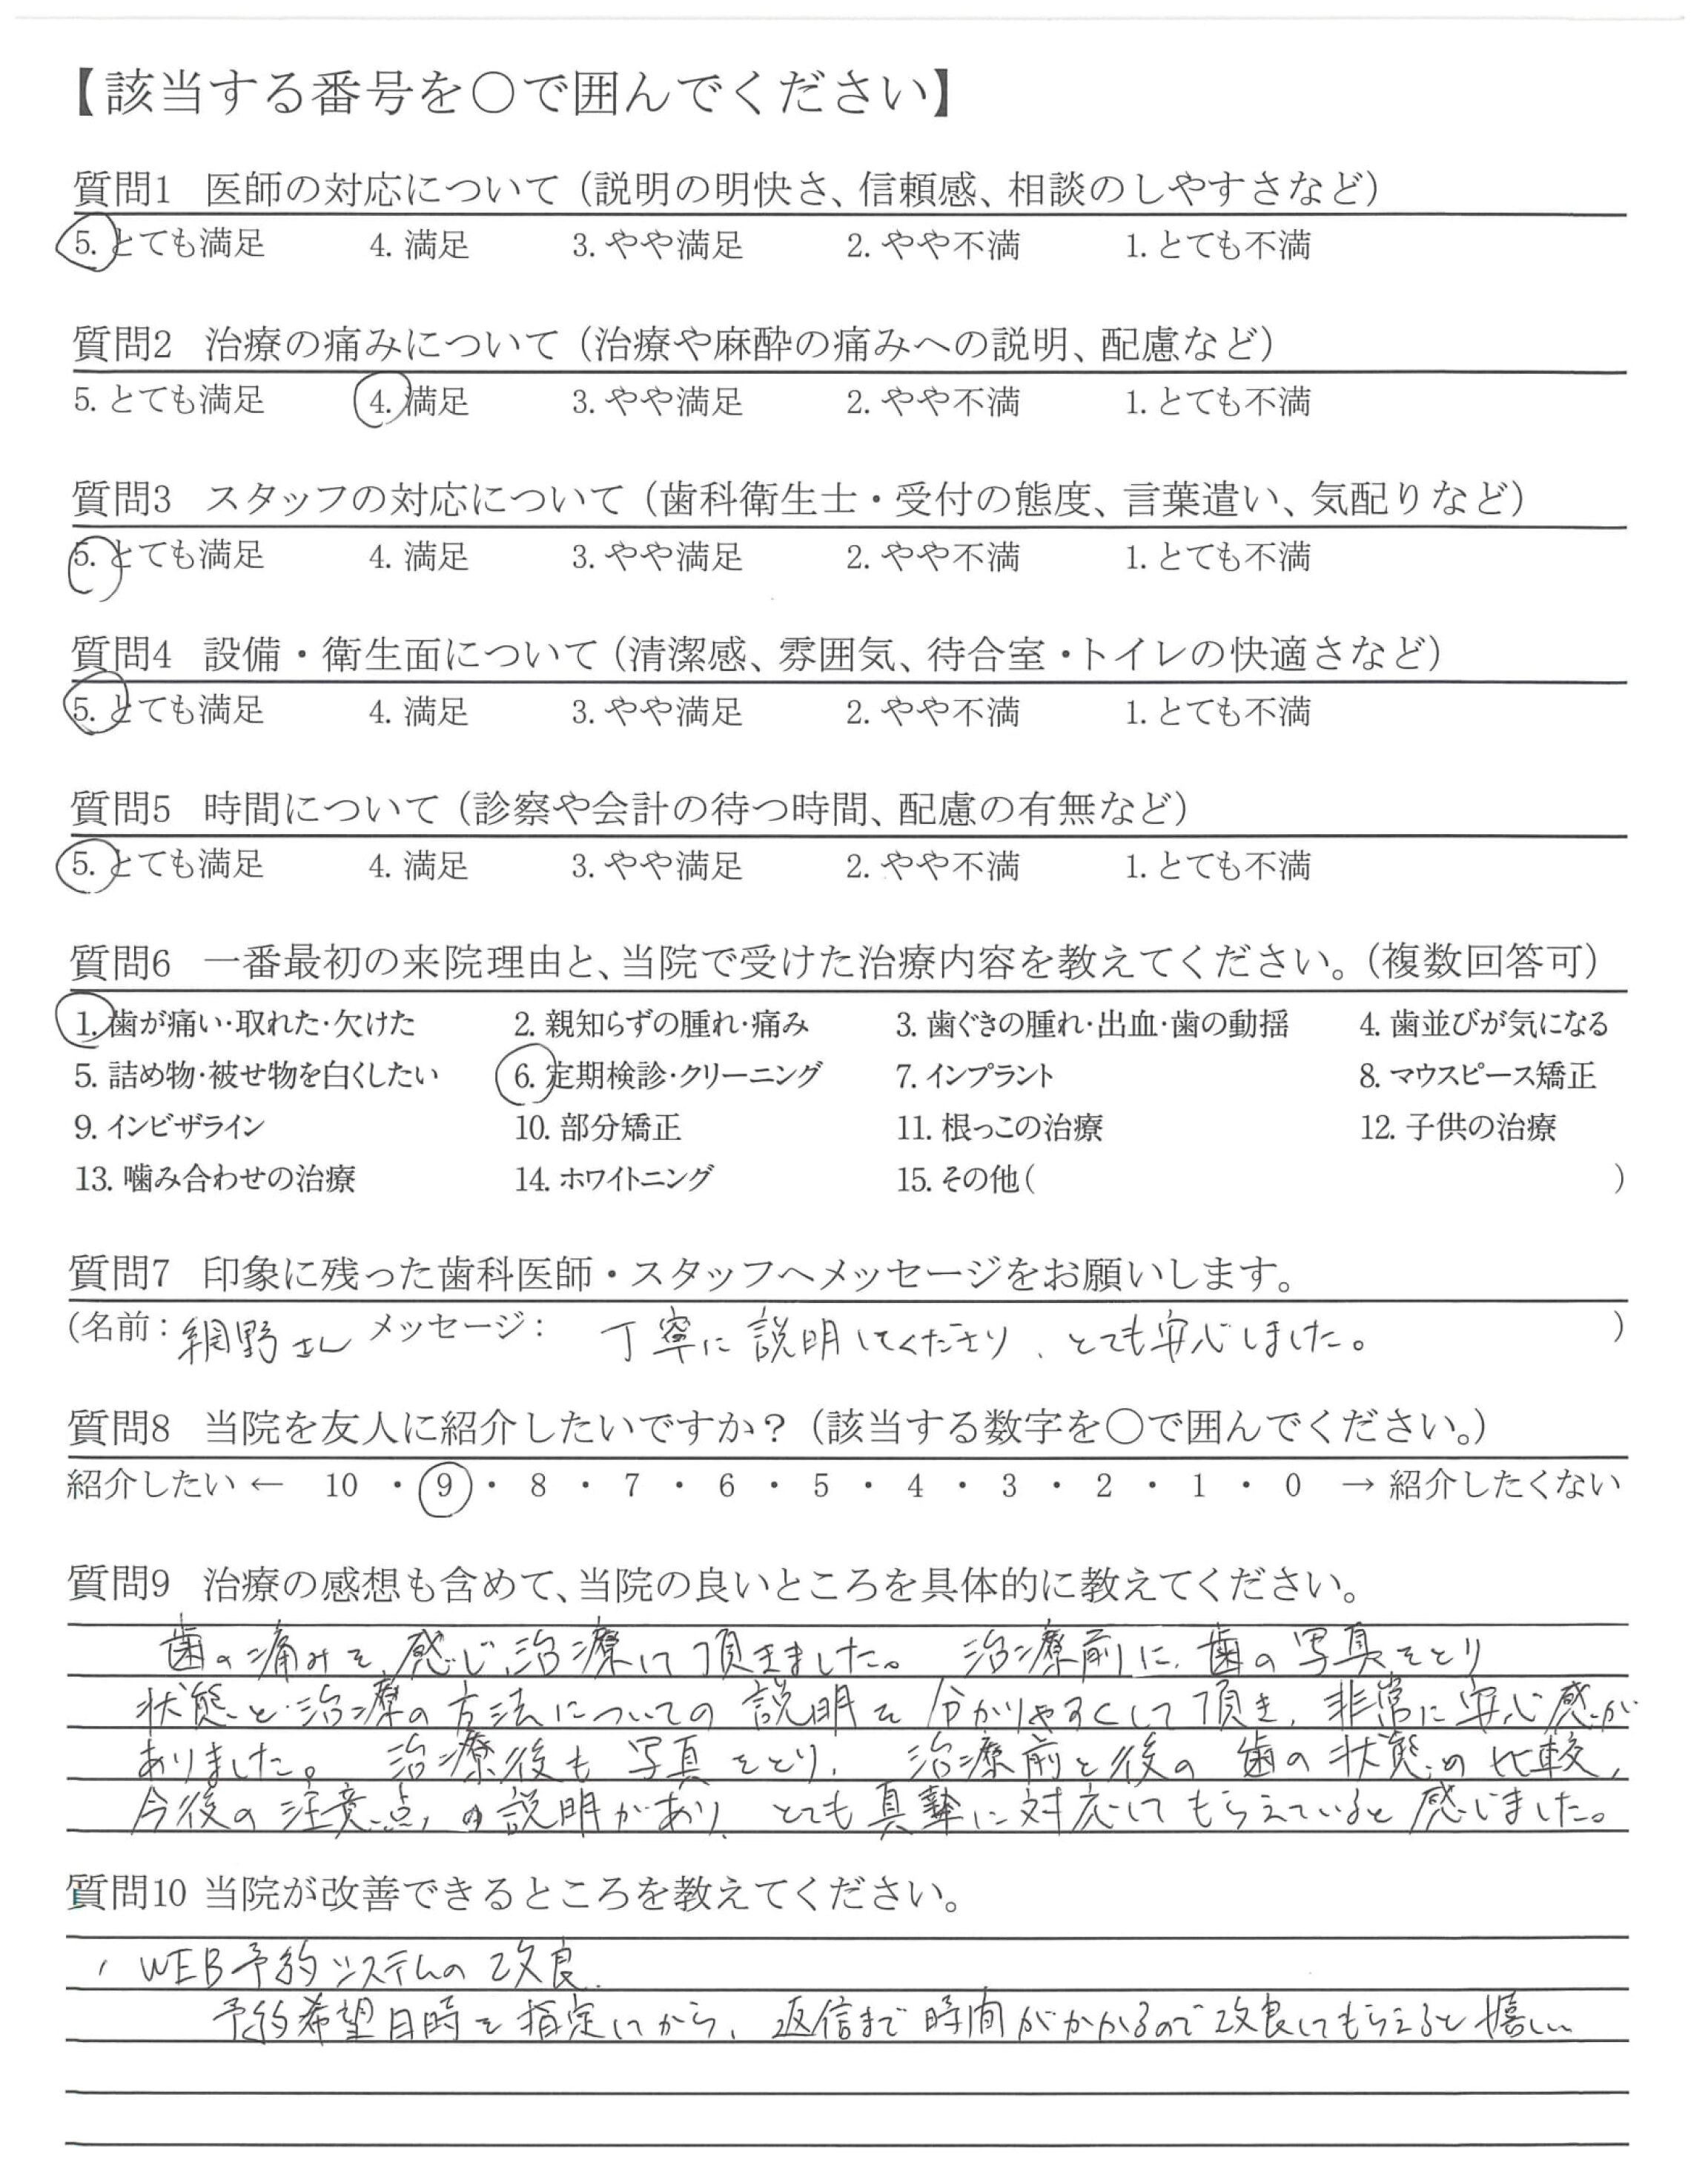 【該当する番号を○で囲んでください】
質問1 医師の対応について（説明の明快さ、信頼感、相談のしやすさなど）
5. とても満足 4. 満足 3. やや満足 2. やや不満 1. とても不満
質問2 治療の痛みについて（治療や麻酔の痛みへの説明、配慮など）
5. とても満足 4. 満足 3. やや満足 2. やや不満 1. とても不満
質問3 スタッフの対応について（歯科衛生士・受付の態度、言葉遣い、気配りなど）
5. とても満足 4. 満足 3. やや満足 2. やや不満 1. とても不満
質問4 設備・衛生面について（清潔感、雰囲気、待合室・トイレの快適さなど）
5. とても満足 4. 満足 3. やや満足 2. やや不満 1. とても不満
質問5 時間について（診察や会計の待つ時間、配慮の有無など）
5. とても満足 4. 満足 3. やや満足 2. やや不満 1. とても不満
質問6 一番最初の来院理由と、当院で受けた治療内容を教えてください。（複数回答可）
1. 歯が痛い・取れた・欠けた 2. 親知らずの腫れ・痛み 3. 歯ぐきの腫れ・出血・歯の動揺 4. 歯並びが気になる
5. 詰め物・被せ物を白くしたい 6. 定期検診・クリーニング 7. インプラント 8. マウスピース矯正
9. インビザライン 10. 部分矯正 11. 根っこの治療 12. 子供の治療
13. 噛み合わせの治療 14. ホワイトニング 15. その他（ ）
質問7 印象に残った歯科医師・スタッフへメッセージをお願いします。
（名前：網野さん メッセージ： 丁寧に説明してくださり、とても安心しました。 ）
質問8 当院を友人に紹介したいですか？（該当する数字を○で囲んでください。）
紹介したい ← 10 ・ 9 ・ 8 ・ 7 ・ 6 ・ 5 ・ 4 ・ 3 ・ 2 ・ 1 ・ 0 → 紹介したくない
質問9 治療の感想も含めて、当院の良いところを具体的に教えてください。
歯の痛みを感じ治療して頂きました。 治療前に、歯の写真をとり
状態と治療の方法についての説明を分かりやすくして頂き、非常に安心感が
ありました。 治療後も写真をとり、 治療前と後の歯の状態の比較、
今後の注意点、の説明があり、とても真摯に対応してもらえていると感じました。
質問10 当院が改善できるところを教えてください。
・WEB予約システムの改良.
予約希望日時を指定してから、返信まで時間がかかるので改良してもらえると嬉しい